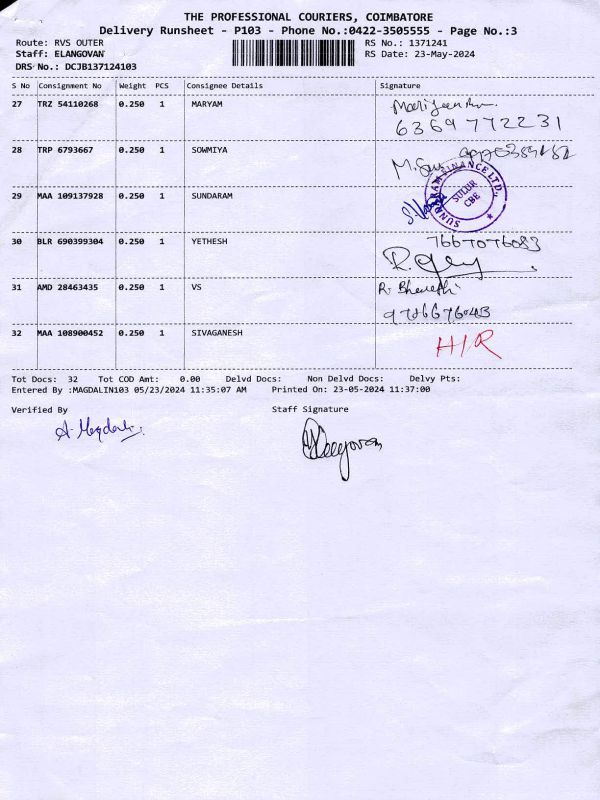 THE PROFESSIONAL COURIERS, COIMBATORE
Delivery Runsheet - P103 - Phone No.:0422-3505555 - Page No.:3
Route: RVS OUTER RS No.: 1371241
Staff: ELANGOVAN RS Date: 23-May-2024
DRS No.: DCJB137124103
S No Consignment No Weight PCS Consignee Details Signature
27 TRZ 54110268 0.250 1 MARYAM
6369772231
28 TRP 6793667 0.250 1 SOWMIYA
29 MAA 109137928 0.250 1 SUNDARAM
SUNDARAM FINANCE LTD.,
SULUR
CBE
30 BLR 690399304 0.250 1 YETHESH 7667076083
31 AMD 28463435 0.250 1 VS R. Bharathi
32 MAA 108900452 0.250 1 SIVAGANESH H/R
Tot Docs: 32 Tot COD Amt: 0.00 Delvd Docs: Non Delvd Docs: Delvy Pts:
Entered By :MAGDALIN103 05/23/2024 11:35:07 AM Printed On: 23-05-2024 11:37:00
Verified By Staff Signature